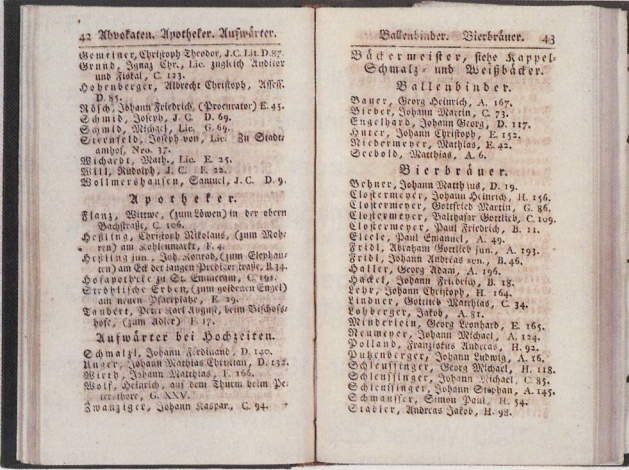 42 Advokaten. Apotheker. Aufwärter.
Gemeiner, Christoph Theodor, J.C. Lit. D. 87.
Grund, Ignaz Chr., Lic. zugleich Auditor
und Fiskal, C. 123.
Hohenberger, Albrecht Christoph, Assess.
D. 85.
Rösch, Johann Friedrich, (Procurator) E. 45.
Schmid, Joseph, J. C. D. 69.
Schmid, Michael, Lic. G. 69.
Sternfeld, Joseph von, Lic. Zu Stadt
amhof, Nro. 37.
Wichardt, Math., Lic. E. 25.
Will, Rudolph, J.C. F. 22.
Wollmershausen, Samuel, J.C. D. 9.
Apotheker.
Flanz, Wittwe, (zum Löwen) in der obern
Bachstraße, C. 106.
Heßling, Christoph Nikolaus, (zum Moh-
ren) am Kohlenmarkt, F. 4.
Heßling jun., Joh. Konrad, (zum Elephan-
ten) am Eck der langen Predigerstraße, B. 34.
Hofapotheke zu St. Emmeram, C. 191.
Ströhlische Erben, (zum goldenen Engel)
am neuen Pfarrplatze, E. 29.
Taubert, Peter Karl August, beim Bischofs-
hofe, (zum Adler) F. 17.
Aufwärter bei Hochzeiten.
Schmalzl, Johann Ferdinand, D. 140.
Unger, Johann Mathias Christian, D. 132.
Wirth, Johann Mathias, F. 166.
Wolf, Heinrich, auf dem Thurm beim Pe-
tersthore, G. XXV.
Zwanziger, Johann Kaspar, C. 94.
Ballenbinder. Bierbräuer. 43
Bäckermeister, siehe Kappel-
Schmalz- und Weißbäcker.
Ballenbinder.
Bauer, Georg Heinrich, A. 167.
Bieber, Johann Martin, C. 73.
Engelhard, Johann Georg, D. 117.
Huter, Johann Christoph, E. 152.
Niedermeyer, Mathias, E. 42.
Seebold, Matthias, A. 6.
Bierbräuer.
Behner, Johann Matthäus, D. 19.
Clostermeyer, Johann Heinrich, H. 156.
Clostermeyer, Gottfried Martin, G. 86.
Clostermeyer, Balthasar Gottlieb, C. 109.
Clostermeyer, Paul Friedrich, B. 11.
Eisele, Paul Emanuel, A. 49.
Fridl, Abraham Gottlieb jun., A. 193.
Fridl, Johann Andreas sen., B. 46.
Haller, Georg Adam, A. 196.
Häckel, Johann Friedrich, B. 18.
Lehr, Johann Christoph, H. 164.
Lindner, Gottlieb Matthias, C. 34.
Lohberger, Jakob, A. 81.
Minderlein, Georg Leonhard, E. 165.
Neumeyer, Johann Michael, A. 124.
Polland, Franziskus Andreas, H. 92.
Putzenberger, Johann Ludwig, A. 16.
Schleussinger, Georg Michael, H. 118.
Schleussinger, Johann Michael, C. 85.
Schleussinger, Johann Stephan, A. 145.
Schmausser, Simon Paul, H. 54.
Stadler, Andreas Jakob, H. 98.